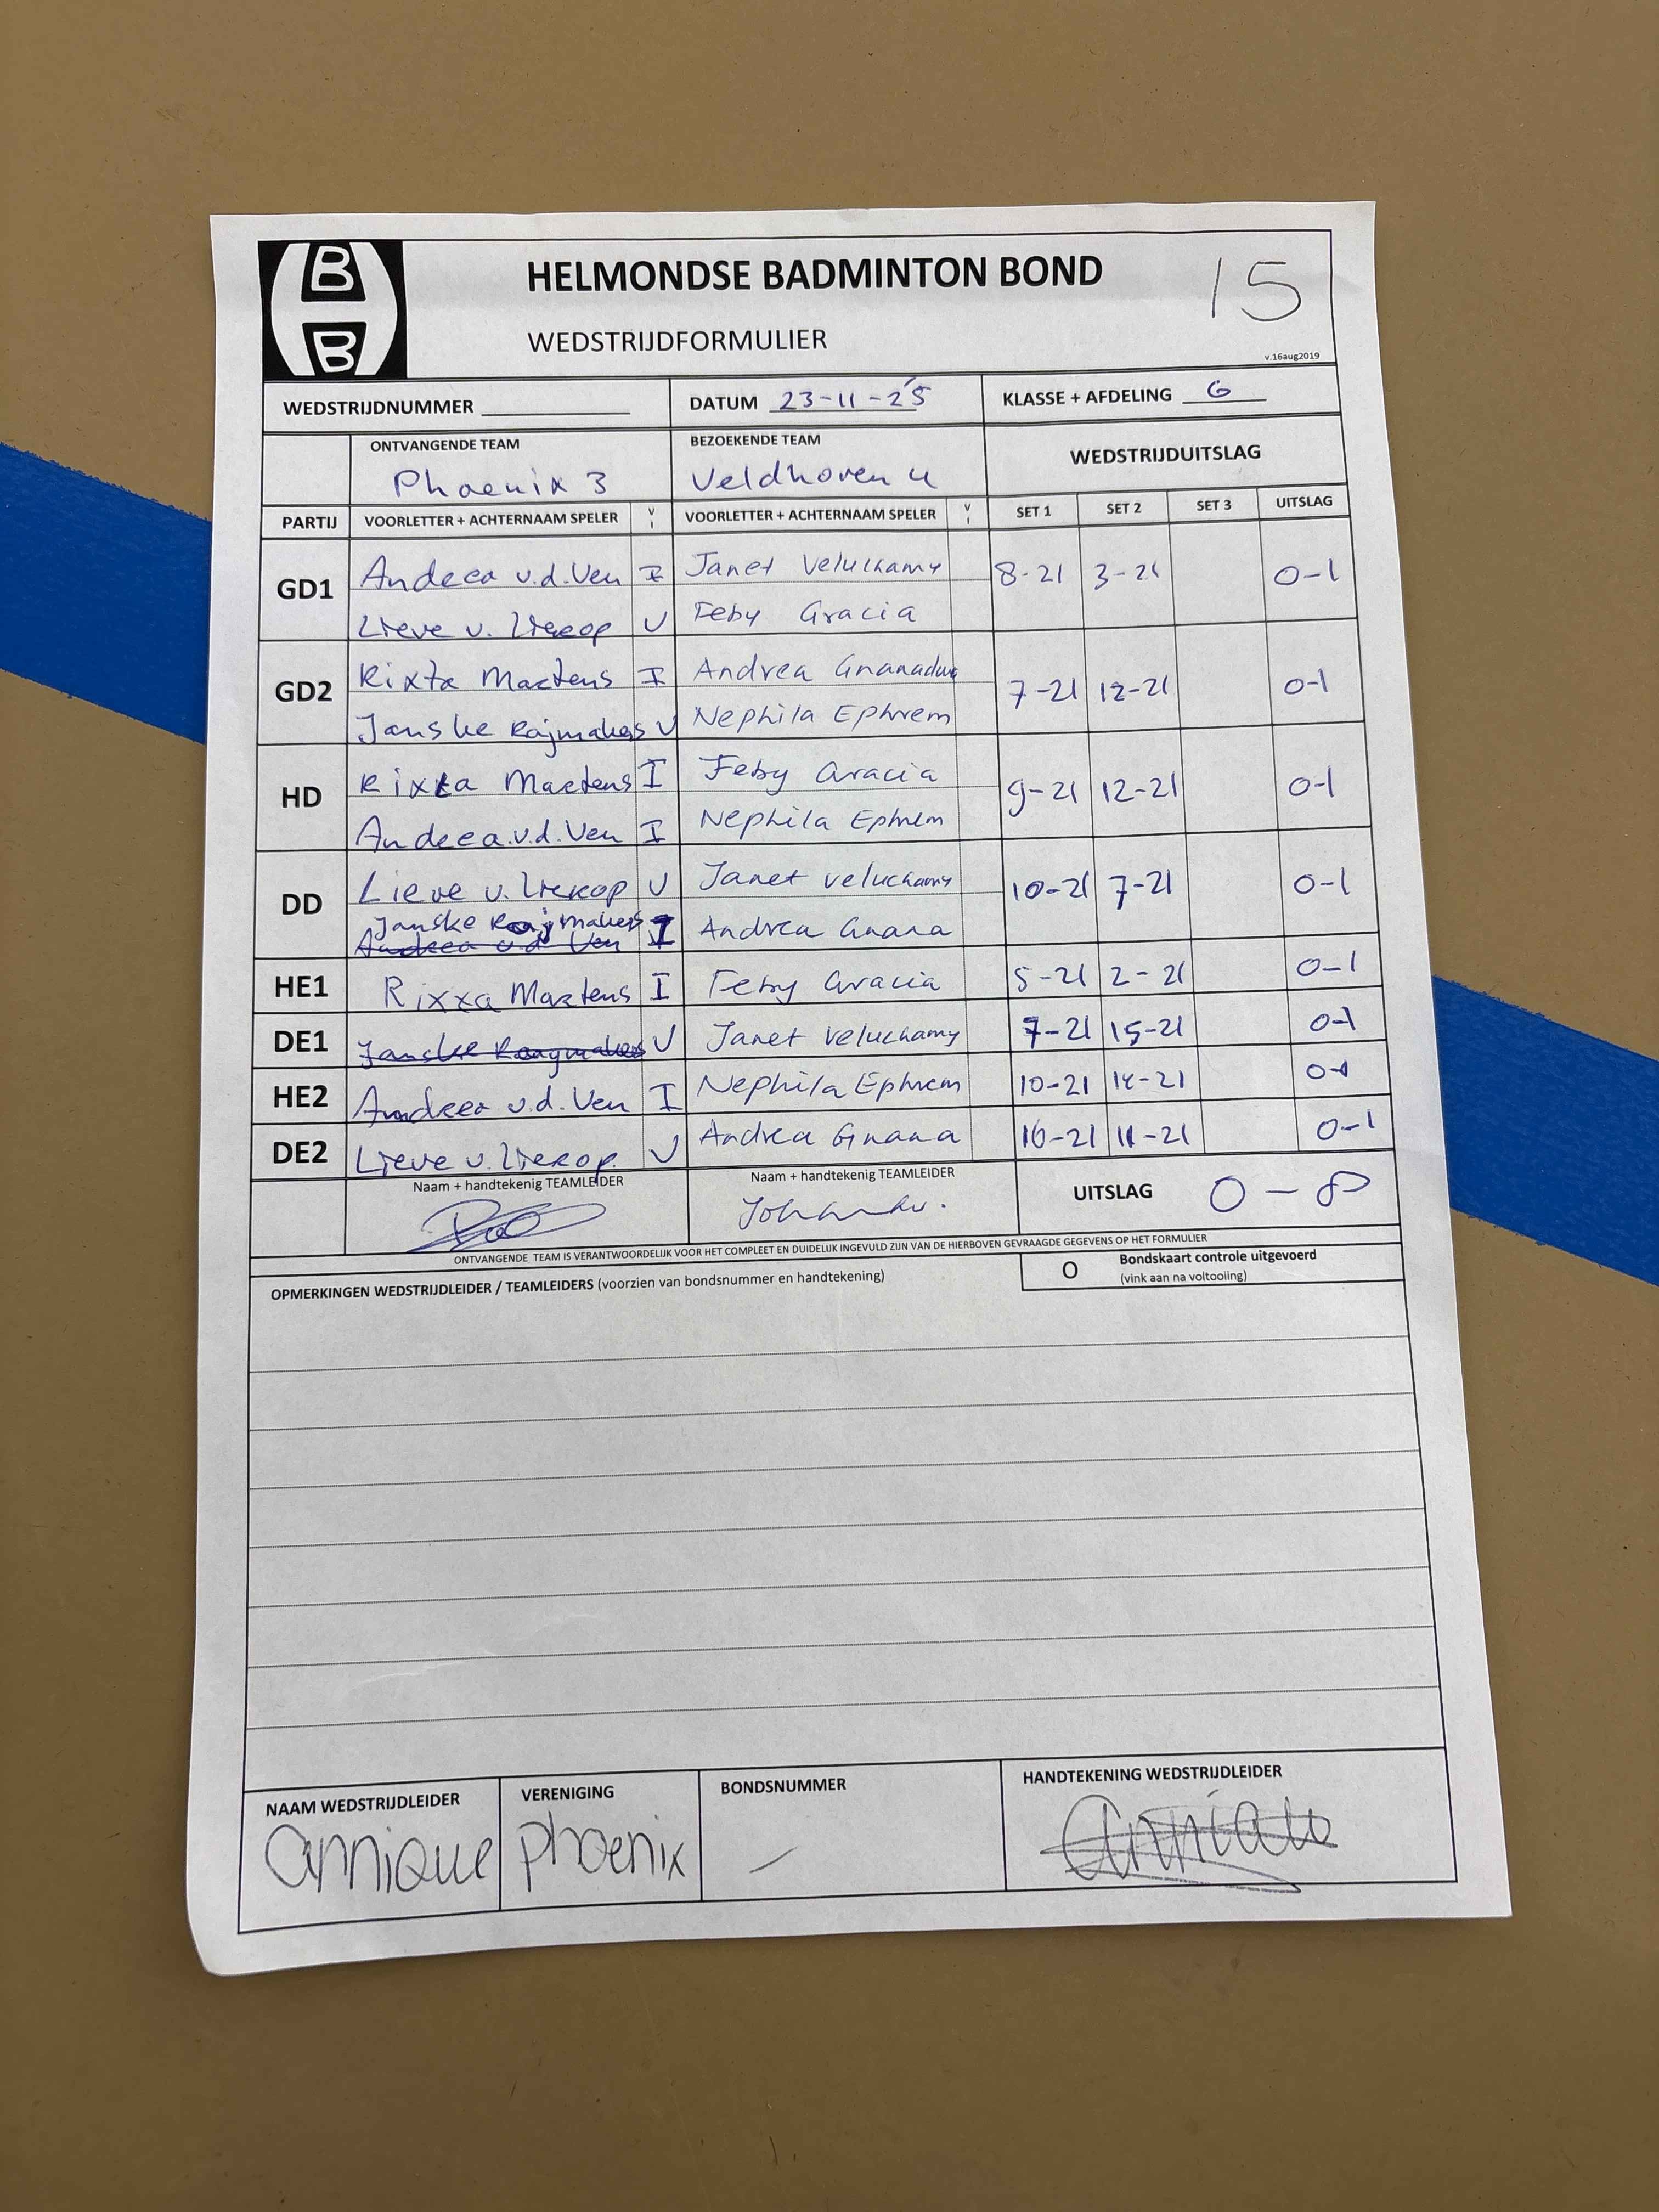 B
B
HELMONDSE BADMINTON BOND
15
WEDSTRIJDFORMULIER
v.16aug2019
WEDSTRIJDNUMMER DATUM 23-11-25 KLASSE + AFDELING G
ONTVANGENDE TEAM BEZOEKENDE TEAM WEDSTRIJDUITSLAG
Phoenix 3 Veldhoven 4
PARTIJ VOORLETTER + ACHTERNAAM SPELER V I VOORLETTER + ACHTERNAAM SPELER V I SET 1 SET 2 SET 3 UITSLAG
GD1 Andrea v.d. Ven I Janet Veluchamy 8-21 3-21 0-1
Lieve v. Lierop V Feby Gracia
GD2 Rixta Martens I Andrea 7-21 12-21 0-1
Janske V Nephila Ephrem
HD Rixta Martens I Feby Gracia 9-21 12-21 0-1
Andrea v.d. Ven I Nephila Ephrem
DD Lieve v. Lierop V Janet Veluchamy 10-21 7-21 0-1
Janske I Andrea Gnana
Andrea v.d. Ven
HE1 Martens I Feby Gracia 5-21 2-21 0-1
DE1 Janske V Janet Veluchamy 7-21 15-21 0-1
HE2 Andrea v.d. Ven I Nephila Ephrem 10-21 14-21 0-1
DE2 Lieve v. Lierop. V Andrea Gnana 16-21 11-21 0-1
Naam + handtekenig TEAMLEIDER Naam + handtekenig TEAMLEIDER UITSLAG 0-8
ONTVANGENDE TEAM IS VERANTWOORDELIJK VOOR HET COMPLEET EN DUIDELIJK INGEVULD ZIJN VAN DE HIERBOVEN GEVRAAGDE GEGEVENS OP HET FORMULIER
OPMERKINGEN WEDSTRIJDLEIDER / TEAMLEIDERS (voorzien van bondsnummer en handtekening) O Bondskaart controle uitgevoerd
(vink aan na voltooiing)
NAAM WEDSTRIJDLEIDER VERENIGING BONDSNUMMER HANDTEKENING WEDSTRIJDLEIDER
Annique Phoenix —